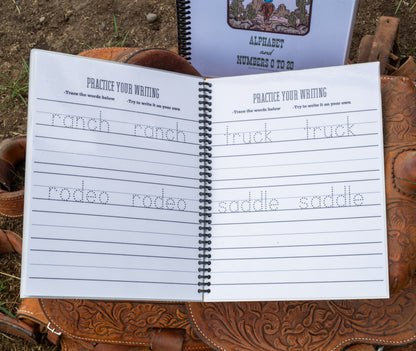 ALPHABET
and
NUMBERS 0 TO 20
PRACTICE YOUR WRITING
-Trace the words below -Try to write it on your own
ranch ranch
rodeo rodeo
PRACTICE YOUR WRITING
-Trace the words below -Try to write it on your own
truck truck
saddle saddle